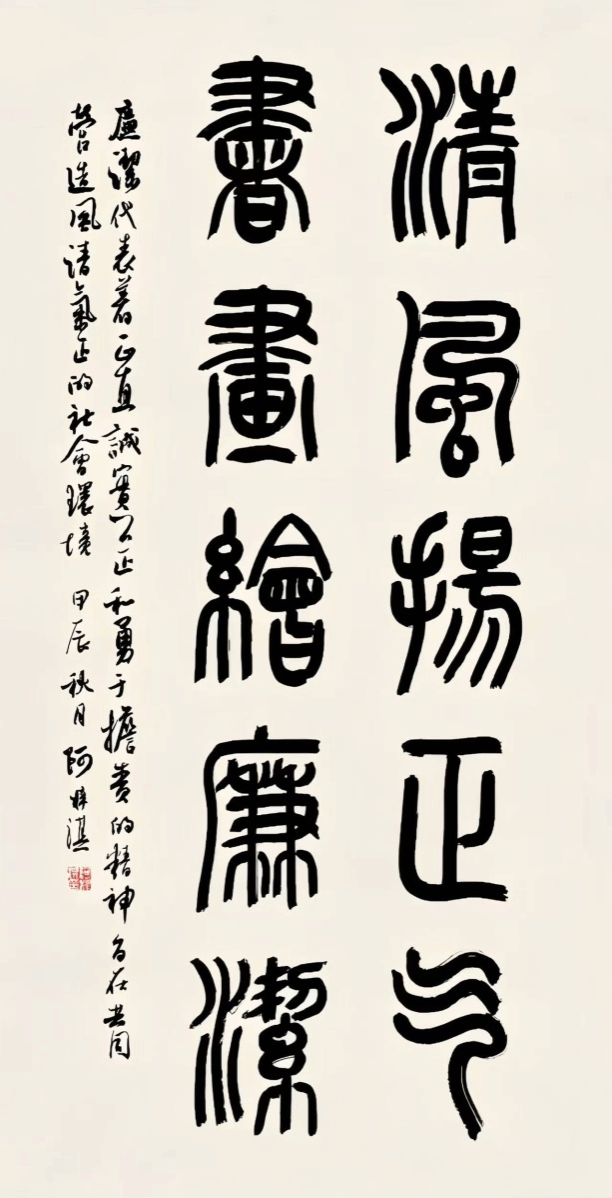 清風揚正气
書畫繪廉潔
廉潔代表着正直誠實公正和勇于擔責的精神旨在共同
營造風清氣正的社會環境 甲辰秋月 阿